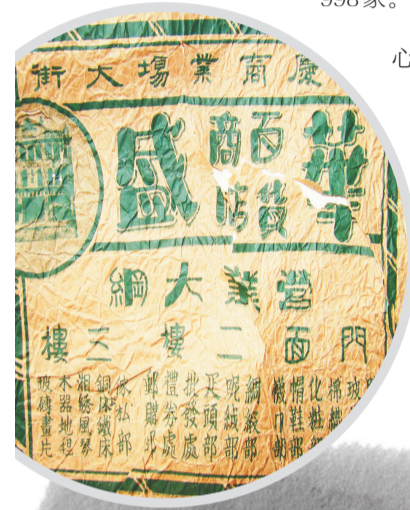 998家。
心
商業場大街
華百貨商店盛
營業大綱
門面 二樓 三樓
棉織
化粧部
帽鞋部
襪巾部
綢緞部
呢絨部
疋頭部
批發處
禮券處
郵購
傢私部
銅床鐵床
湘綉風琴
木器地毯
玻磚畫片